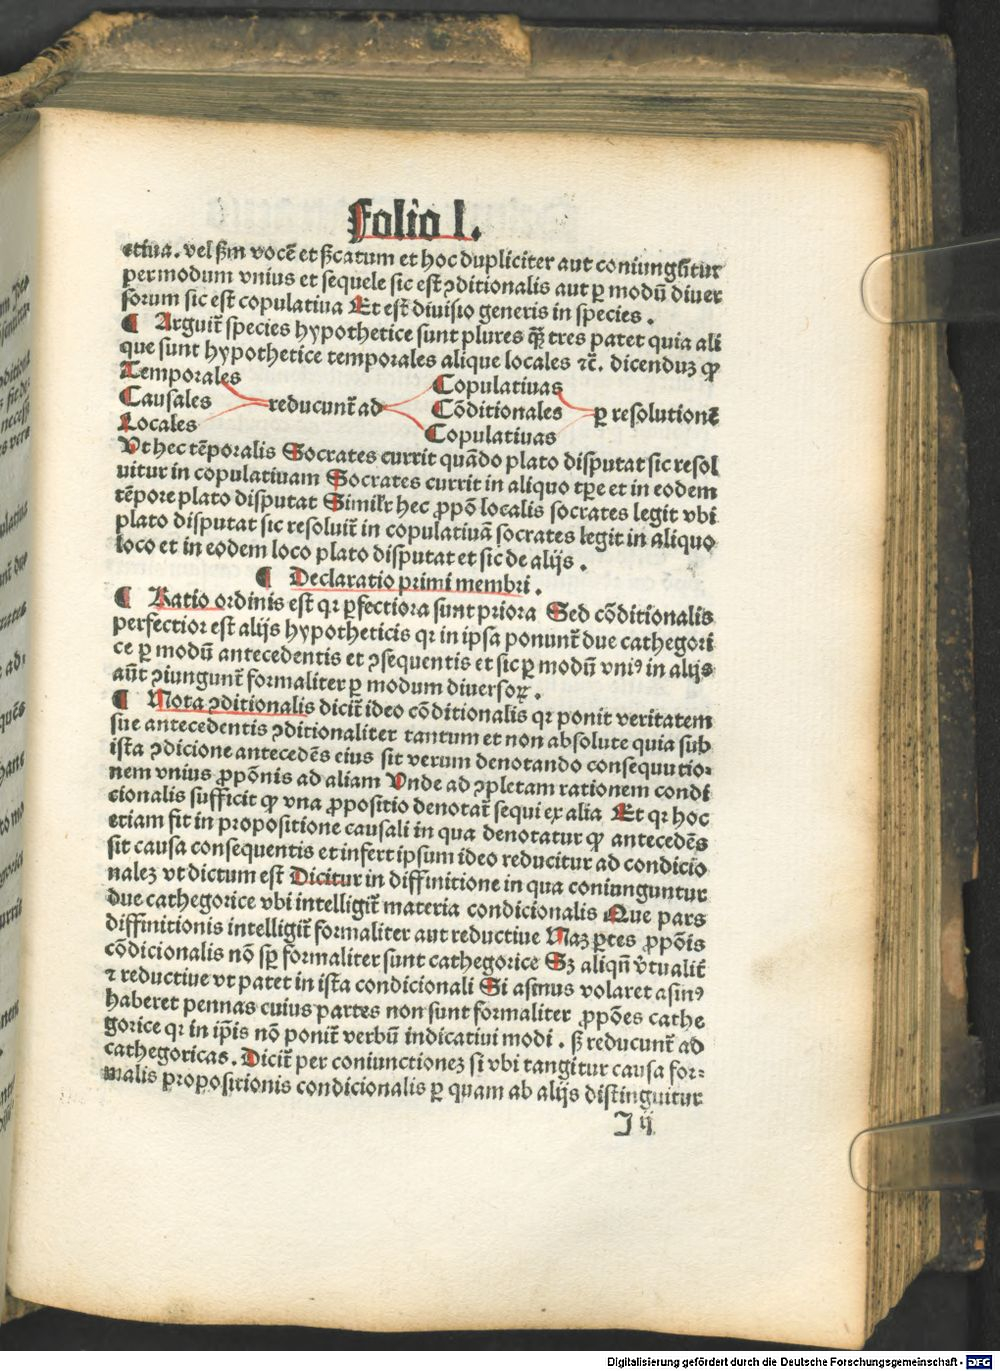 Folio L.
ctiua. vel ẜm vocē et ẜcatum et hoc dupliciter aut coniungūtur
per modum vnius et sequele sic est ꝯditionalis aut ꝑ modū diuer
sorum sic est copulatiua Et est diuisio generis in species.
¶ Arguit̄ species hypothetice sunt plures qȝ̄ tres patet quia ali
que sunt hypothetice temporales alique locales ⁊c̄. dicenduȝ ꝙ
Temporales
Causales
Locales
reducunt̄ ad
Copulatiuas
Cōditionales
Copulatiuas
ꝑ resolutionē
Vt hec tēporalis Socrates currit quādo plato disputat sic resol
uitur in copulatiuam Socrates currit in aliquo tp̄e et in eodem
tēpore plato disputat Similr̄ hec ꝓpō localis socrates legit vbi
plato disputat sic resoluit̄ in copulatiuā socrates legit in aliquo
loco et in eodem loco plato disputat et sic de alijs.
¶ Declaratio primi membri.
¶ Ratio ordinis est qꝛ ꝑfectiora sunt priora Sed cōditionalis
perfectior est alijs hypotheticis qꝛ in ipsa ponunt̄ due cathegori
ce ꝑ modū antecedentis et ꝯsequentis et sic ꝑ modū vniꝰ in alijs
aūt ꝯiungunt̄ formaliter ꝑ modum diuersoꝝ.
¶ Nota ꝯditionalis dicit̄ ideo cōditionalis qꝛ ponit veritatem
sue antecedentis ꝯditionaliter tantum et non absolute quia sub
ista ꝯdicione antecedēs eius sit verum denotando consequutio⸗
nem vnius ꝓpōnis ad aliam Vnde ad ꝯpletam rationem condi
cionalis sufficit ꝙ vna ꝓpositio denotat̄ sequi ex alia Et qꝛ hoc
etiam fit in propositione causali in qua denotatur ꝙ antecedēs
sit causa consequentis et infert ipsum ideo reducitur ad condicio
naleȝ vt dictum est Dicitur in diffinitione in qua coniunguntur
due cathegorice vbi intelligit̄ materia condicionalis Que pars
diffinitionis intelligit̄ formaliter aut reductiue Naȝ ꝑtes ꝓpōis
cōdicionalis nō sꝑ formaliter sunt cathegorice Sȝ aliqn̄ v̓tualit̄
⁊ reductiue vt patet in ista condicionali Si asinus volaret asinꝰ
haberet pennas cuius partes non sunt formaliter ꝓpōes cathe
gorice qꝛ in ip̄is nō ponit̄ verbū indicatiui modi. ẜ reducunt̄ ad
cathegoricas. Dicit̄ per coniunctioneȝ si vbi tangitur causa for⸗
malis ꝓpositionis condicionalis ꝑ quam ab alijs distinguitur
I ij
Digitalisierung gefördert durch die Deutsche Forschungsgemeinschaft - DFG